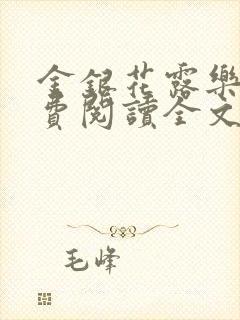 金銀花露樂
費閱讀全文
毛峰